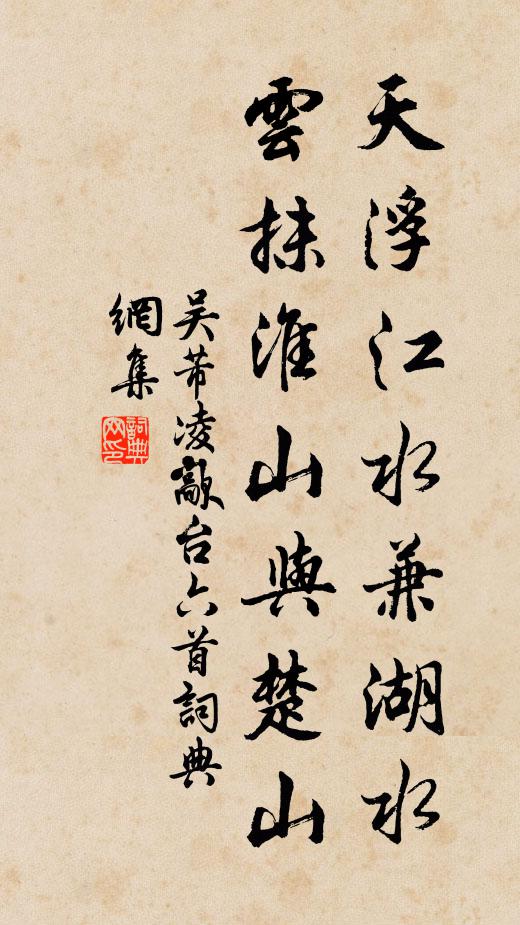 天浮江水兼湖水
雲抹淮山與楚山
吴芾凌敲台六首詞典
網集
詞典網印